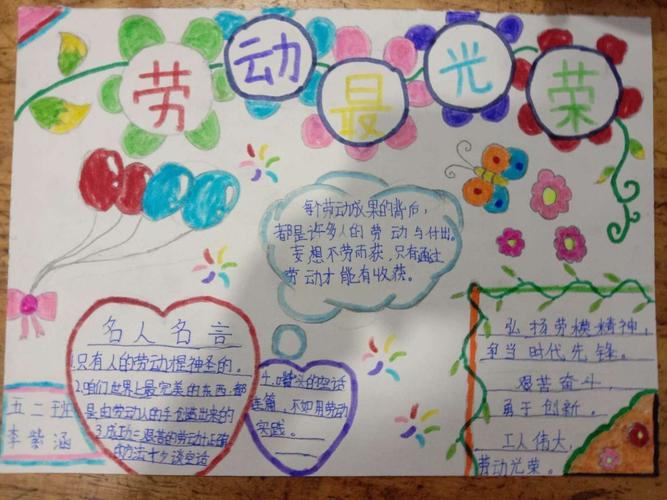 劳动最光荣
每个劳动成果的背后,
都是许多人的劳动与付出。
妄想不劳而获,只有通过
劳动才能有收获。
名人名言
1.只有人的劳动才是神圣的。
2.咱们世界上最完美的东西,都
是由劳动人的手创造出来的
3.成功=艰苦的劳动+正确
的方法+少谈空话
4.嘴头的空话
连篇,不如用劳动
实践。
五二班
李紫涵
弘扬劳模精神,
争当时代先锋。
艰苦奋斗,
勇于创新。
工人伟大,
劳动光荣。